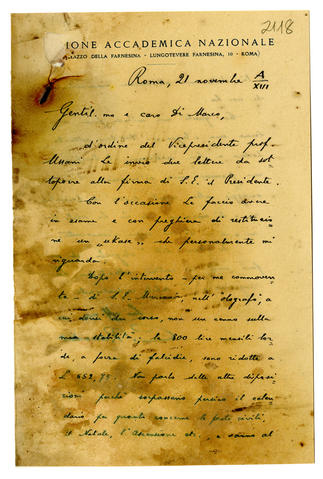 2118
IONE ACCADEMICA NAZIONALE
PALAZZO DELLA FARNESINA - LUNGOTEVERE FARNESINA, 10 - ROMA)
Roma, 21 novembre A
XIII
Gentil.mo e caro Di Marco,
d'ordine del Vicepresidente prof.
Ussani Le invio due lettere da sot-
toporre alla firma di S.E. il Presidente.
Con l'occasione Le faccio avere
in esame e con preghiera di restituzio
ne un "ukase" che personalmente mi
riguarda.
Dopo l'intervento - per me commoven
te - di S.E. nell'olografo, a
cui non un cenno sulla
mia stabilità, le 800 lire mensili lor
de, a forza di falcidie, sono ridotte a
L. 652,75. Non parlo delle altre disposi
zioni perché sorpassano persino il calen
dario per quanto concerne le feste civili,
il Natale, l'Ascensione etc., e siamo al